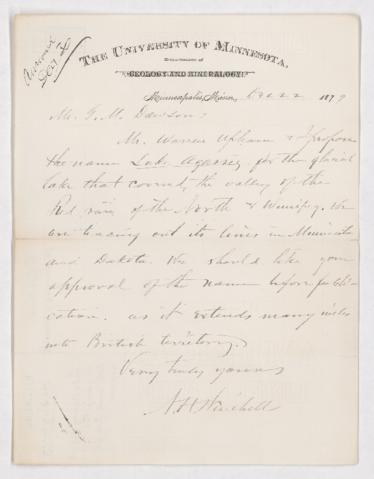 Answered
Dec 2
THE UNIVERSITY OF MINNESOTA.
DEPARTMENT OF
GEOLOGY AND MINERALOGY.
Minneapolis, Minn. Dec 22 1879
Mr. G. M. Dawson:
Mr. Warren Upham & I propose
the name Lake Agassiz, for the glacial
lake that covered the valley of the
Red river of the North & Winnipeg. We
are tracing out its lines in Minnesota
and Dakota. We should like your
approval of the name before publi-
cation. as it extends many miles
into British territory.
Very truly yours
N. H. Winchell